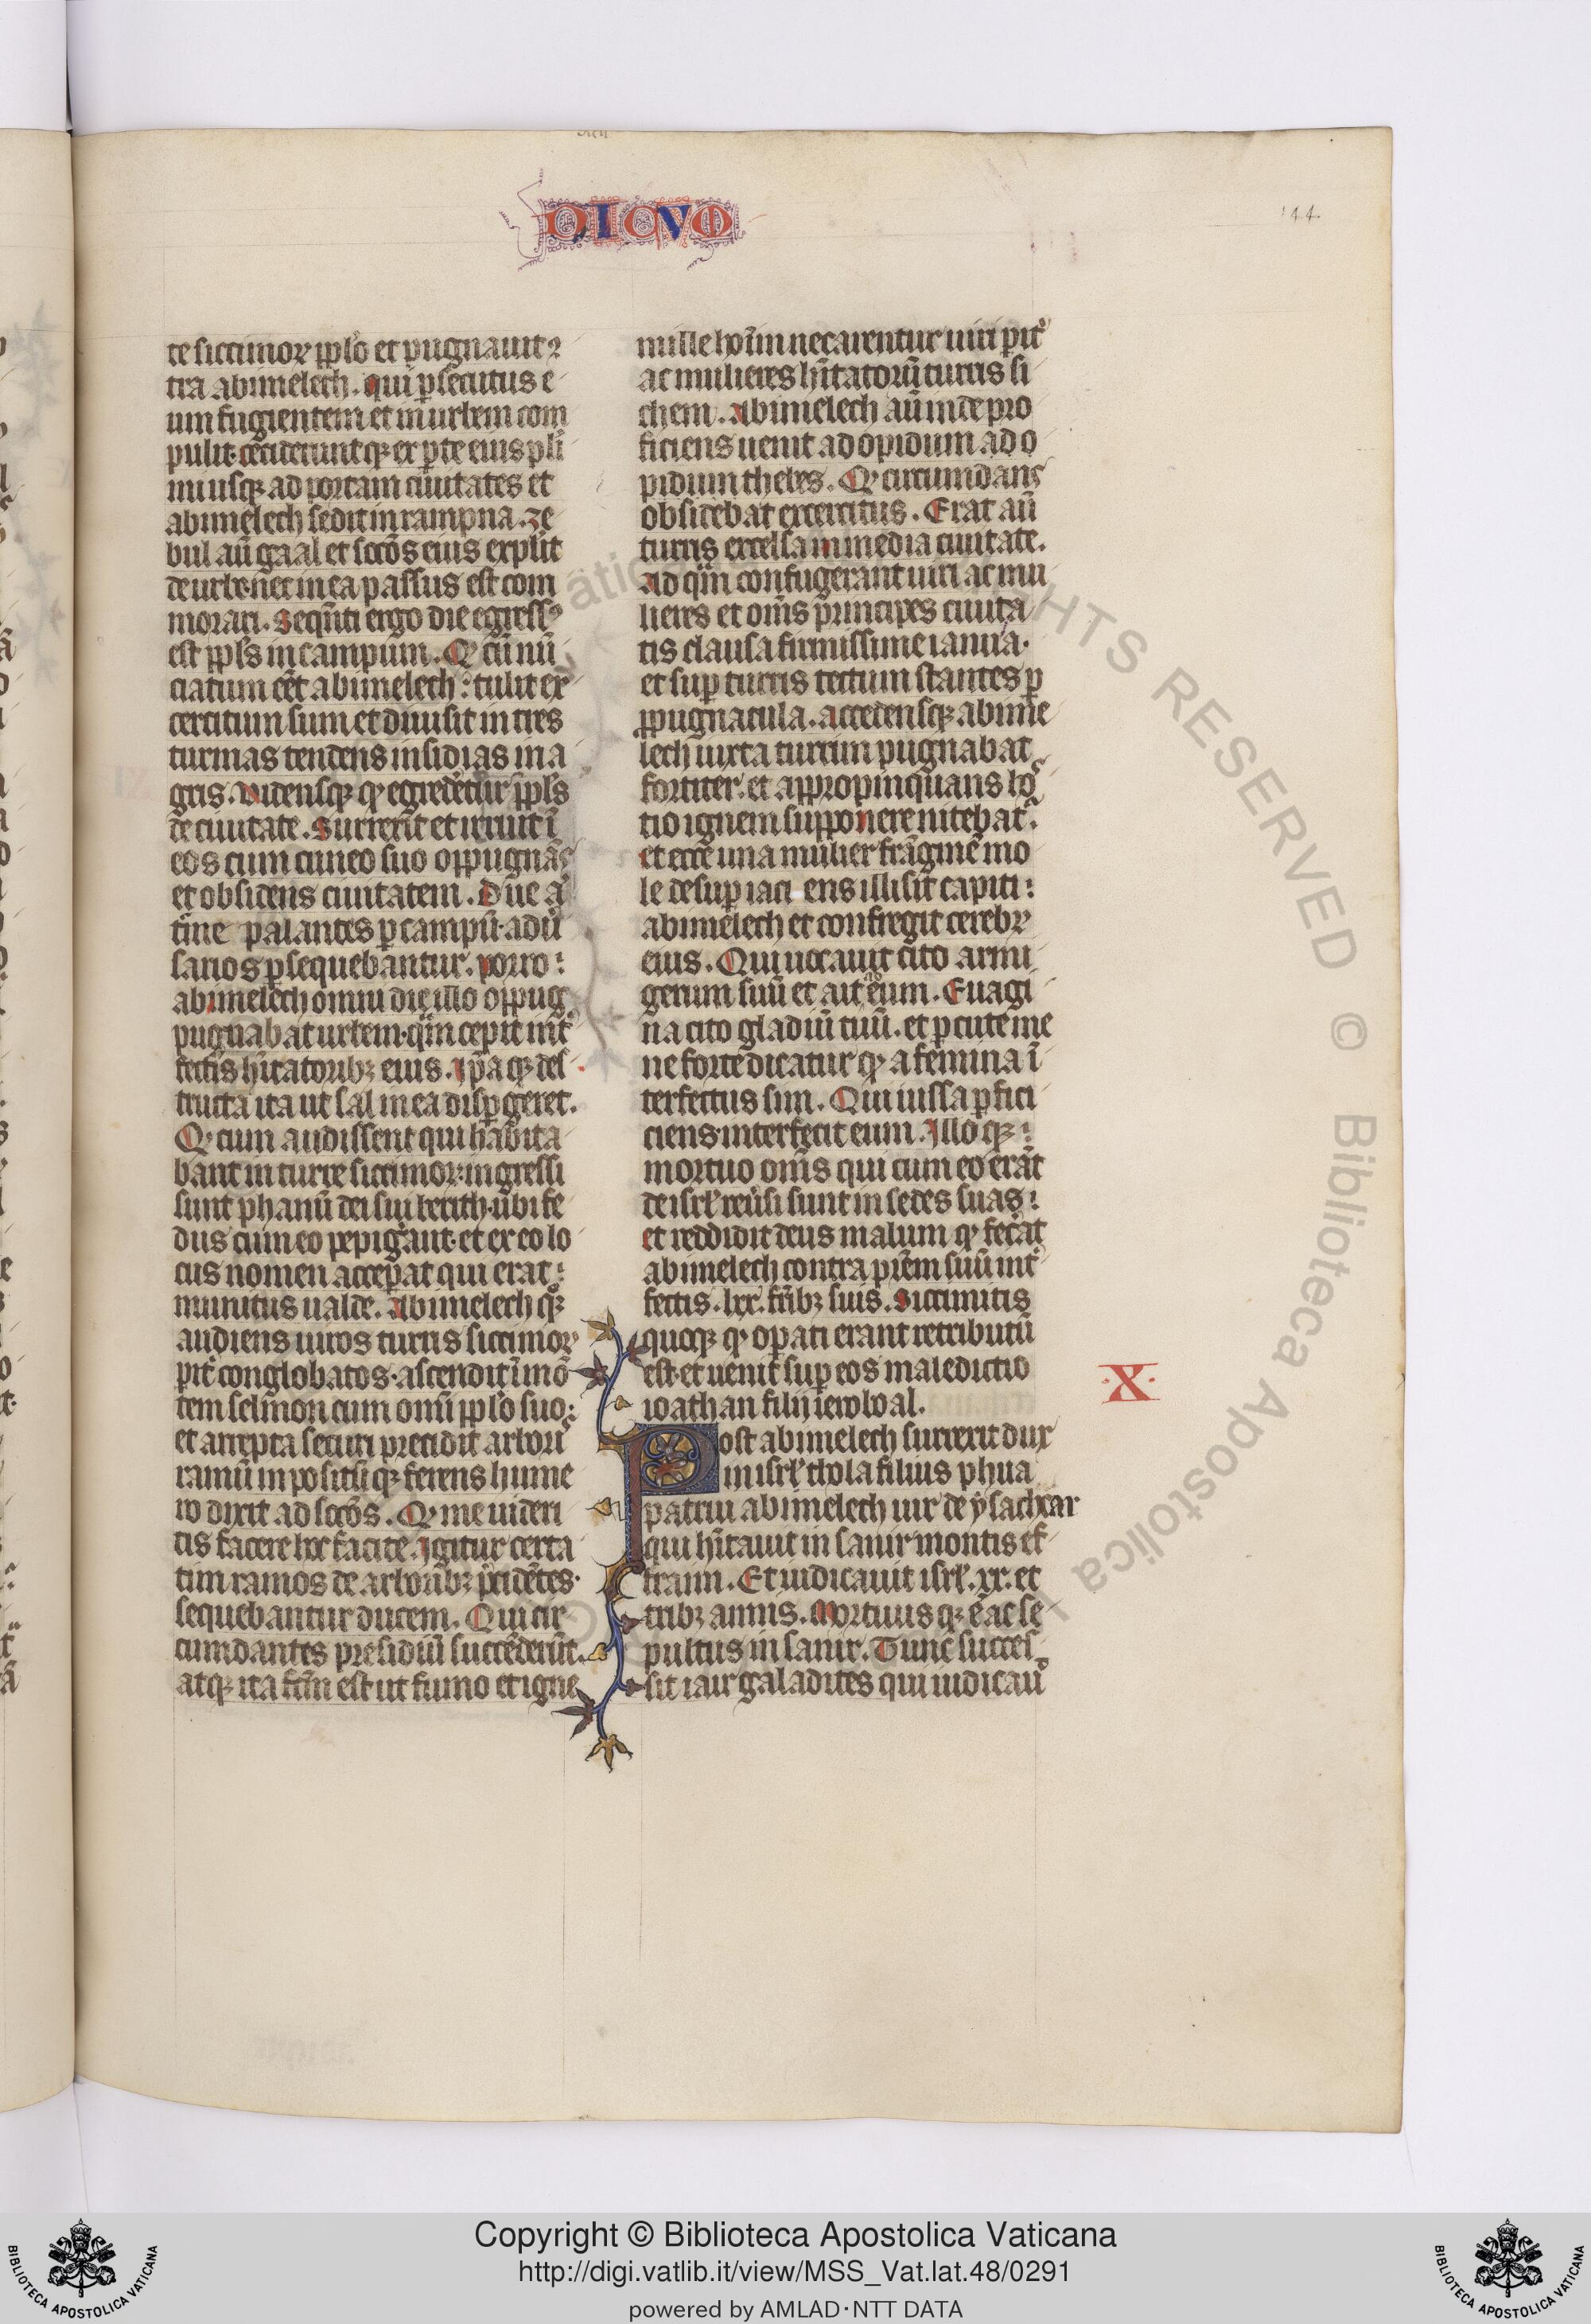 DICVM
144
te siccimoꝝ pplo et pugnauit ꝯ
tra abimelech. qui ꝑsecutus e
um fugientem et in urbem com
pulit. cecideruntqꝫ ex ꝑte eius pli
mi usqꝫ ad portam ciuitates et
abimelech sedit in rampna. ze
bul aū gaal et socōs eius explit
de urbe. nec in ea passus est com
morari. Seqn̄ti ergo die egressꝰ
est ppls in campum. Qͥ cū nū
ciatum eēt abimelech: tulit ex
cercitum sum et diuisit in tres
turmas tendens insidias in a
gris. Uidensqꝫ qͥ egredetur ppls
de ciuitate. Surrexit et irruit ī
eos cum cuneo suo oppugnās
et obsidens ciuitatem. Due aͣ
tine palantes ꝑ campū. adū
sarios ꝑsequebantur. porro:
abimelech omni die illo oppug
pugnabat urbem. qͣm cepit int̄
fectis hītatoribꝫ eius. Ipa qꝫ des
tructa ita ut sal in ea disꝑgeret.
Qͥ cum audissent qui habita
bant in turre siccimoꝝ. ingressi
sunt phanū dei sui berith. ubi fe
dus cum eo pepigᵉant. et ex eo lo
cus nomen acceꝑat qui erat:
munitus ualde. Abimelech qͦꝫ
audiens uiros turris siccimoꝝ
pit̄ conglobatos. ascendit ī mō
tem selmon cum omī pplo suo:
et arrepta securi precidit arbori
ramū inpositūqꝫ ferens hume
ro dixit ad socōs. Qͥ me uideri
tis facere hoc facite. Igitur certa
tim ramos de arboribꝫ p̄cidētes.
sequebantur ducem. Qui cir
cumdantes presidiū succēderūt.
atqꝫ ita fc̄m est ut fumo et igne
mille hoīm necarentur uiri pit̄
ac mulieres hītatorū turris si
chem. Abimelech aū inde pro
ficiens uenit ad opidum ad o
pidum thebes. Qͥ circumdans
obsidebat excercitus. Erat aū
turris excelsa in media ciuitate.
Ad qͣm confugerant uiri ac mu
lieres et om̄s principes ciuita
tis clausa firmissime ianua.
et suꝑ turris tectum stantes ꝑ
ꝓpugnacula. accedensqꝫ abime
lech iuxta turrim pugnabat
fortiter. et appropinquans hoˢ
tio ignem supponere nitebatᷣ.
et ecce una mulier fragmē mo
le desuꝑ iaci ens illisit capiti:
abimelech et confregit cerebꝝ
eius. Qui uocauit cito armi
gerum suū et ait ad eum. Euagi
na cito gladiū tuū. et ꝑcute me
ne forte dicatur qͥ a femina ī
terfectus sim. Qui iussa ꝑfici
ciens. interfecit eum. Illo qꝫ:
mortuo om̄s qui cum eo erāt
de isrł reūsi sunt in sedes suas:
et reddidit deus malum qͥ fecᵉat
abimelech contra prēm suū int̄
fectis. lxx. frībꝫ suis. Siccimitis
quoqꝫ qͥ oꝑati erant retributū
est. et uenit suꝑ eos maledictio
ioathan filij ieroboal.
X
Post abimelech surrexit dux
in isrł thola filius phua
patrui abimelech uir de ysachar
qui hītauit in sanir montis ef
fraim. Et iudicauit isrł. xx. et
tribꝫ annis. Mortuus qꝫ ē ac se
pultus in sanir. Tunc succes
sit iair galadites qui iudicauͭ
Copyright © Biblioteca Apostolica Vaticana
http://digi.vatlib.it/view/MSS_Vat.lat.48/0291
powered by AMLAD·NTT DATA
BIBLIOTECA APOSTOLICA VATICANA
BIBLIOTECA APOSTOLICA VATICANA